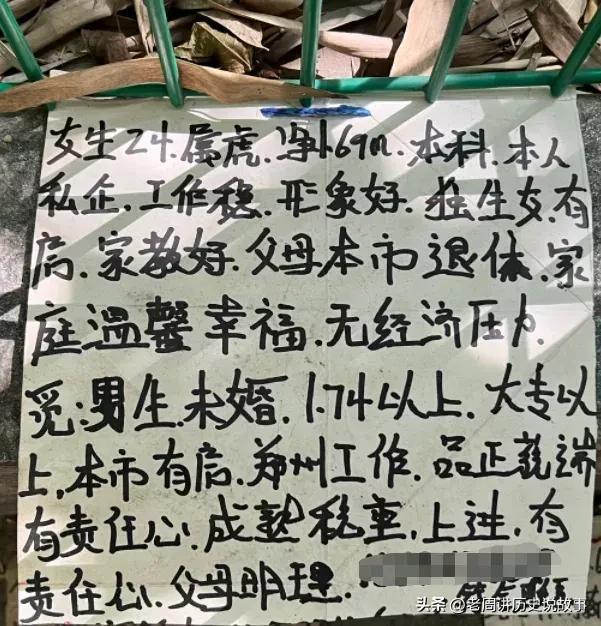 女生24.属虎.净1.69m.本科.本人
私企.工作稳.形象好.独生女.有
房.家教好.父母本市退休.家
庭温馨幸福.无经济压力.
觅:男生.未婚.1.74以上.大专以
上.本市有房.郑州工作.品正貌端
有责任心.成熟稳重.上进.有
责任心.父母明理.
头条 @老周讲历史说故事